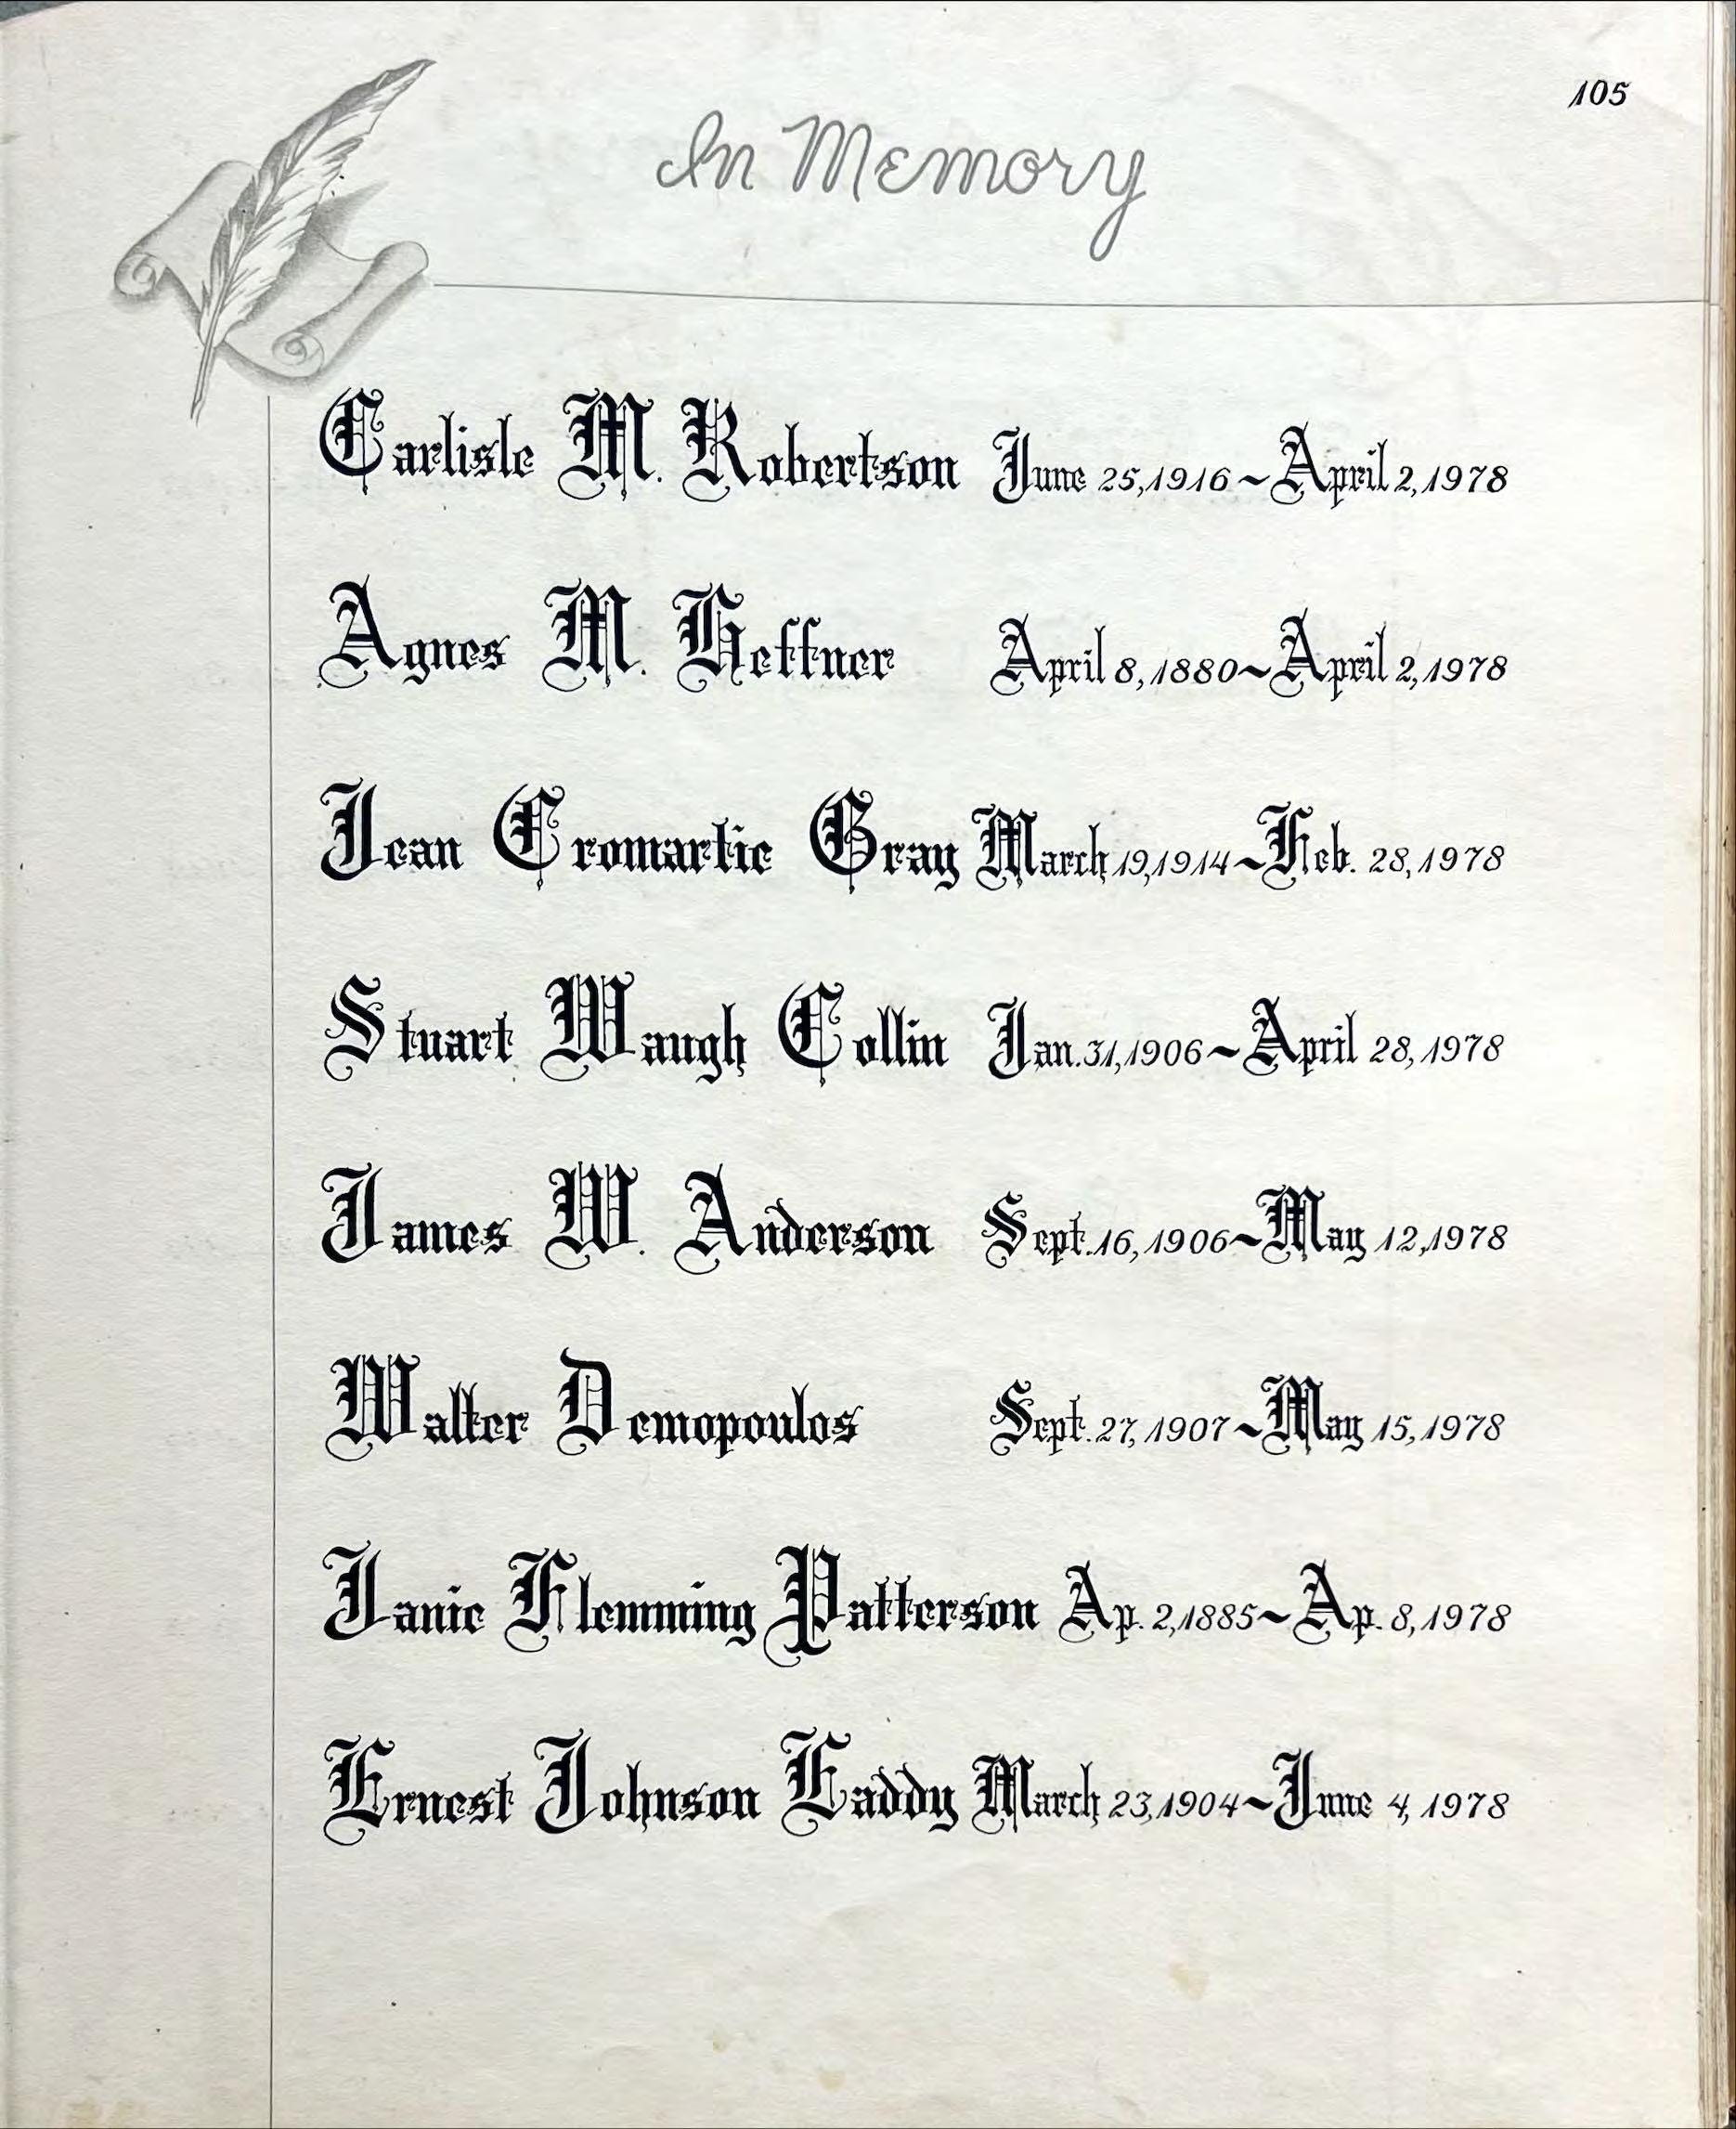 105
In Memory
Carlisle M. Robertson June 25, 1916 ~ April 2, 1978
Agnes M. Heffner April 8, 1880 ~ April 2, 1978
Jean Cromartie Gray March 19, 1914 ~ Feb. 28, 1978
Stuart Waugh Collin Jan. 31, 1906 ~ April 28, 1978
James W. Anderson Sept. 16, 1906 ~ May 12, 1978
Walter Demopoulos Sept. 27, 1907 ~ May 15, 1978
Janie Flemming Patterson Ap. 2, 1885 ~ Ap. 8, 1978
Ernest Johnson Eaddy March 23, 1904 ~ June 4, 1978